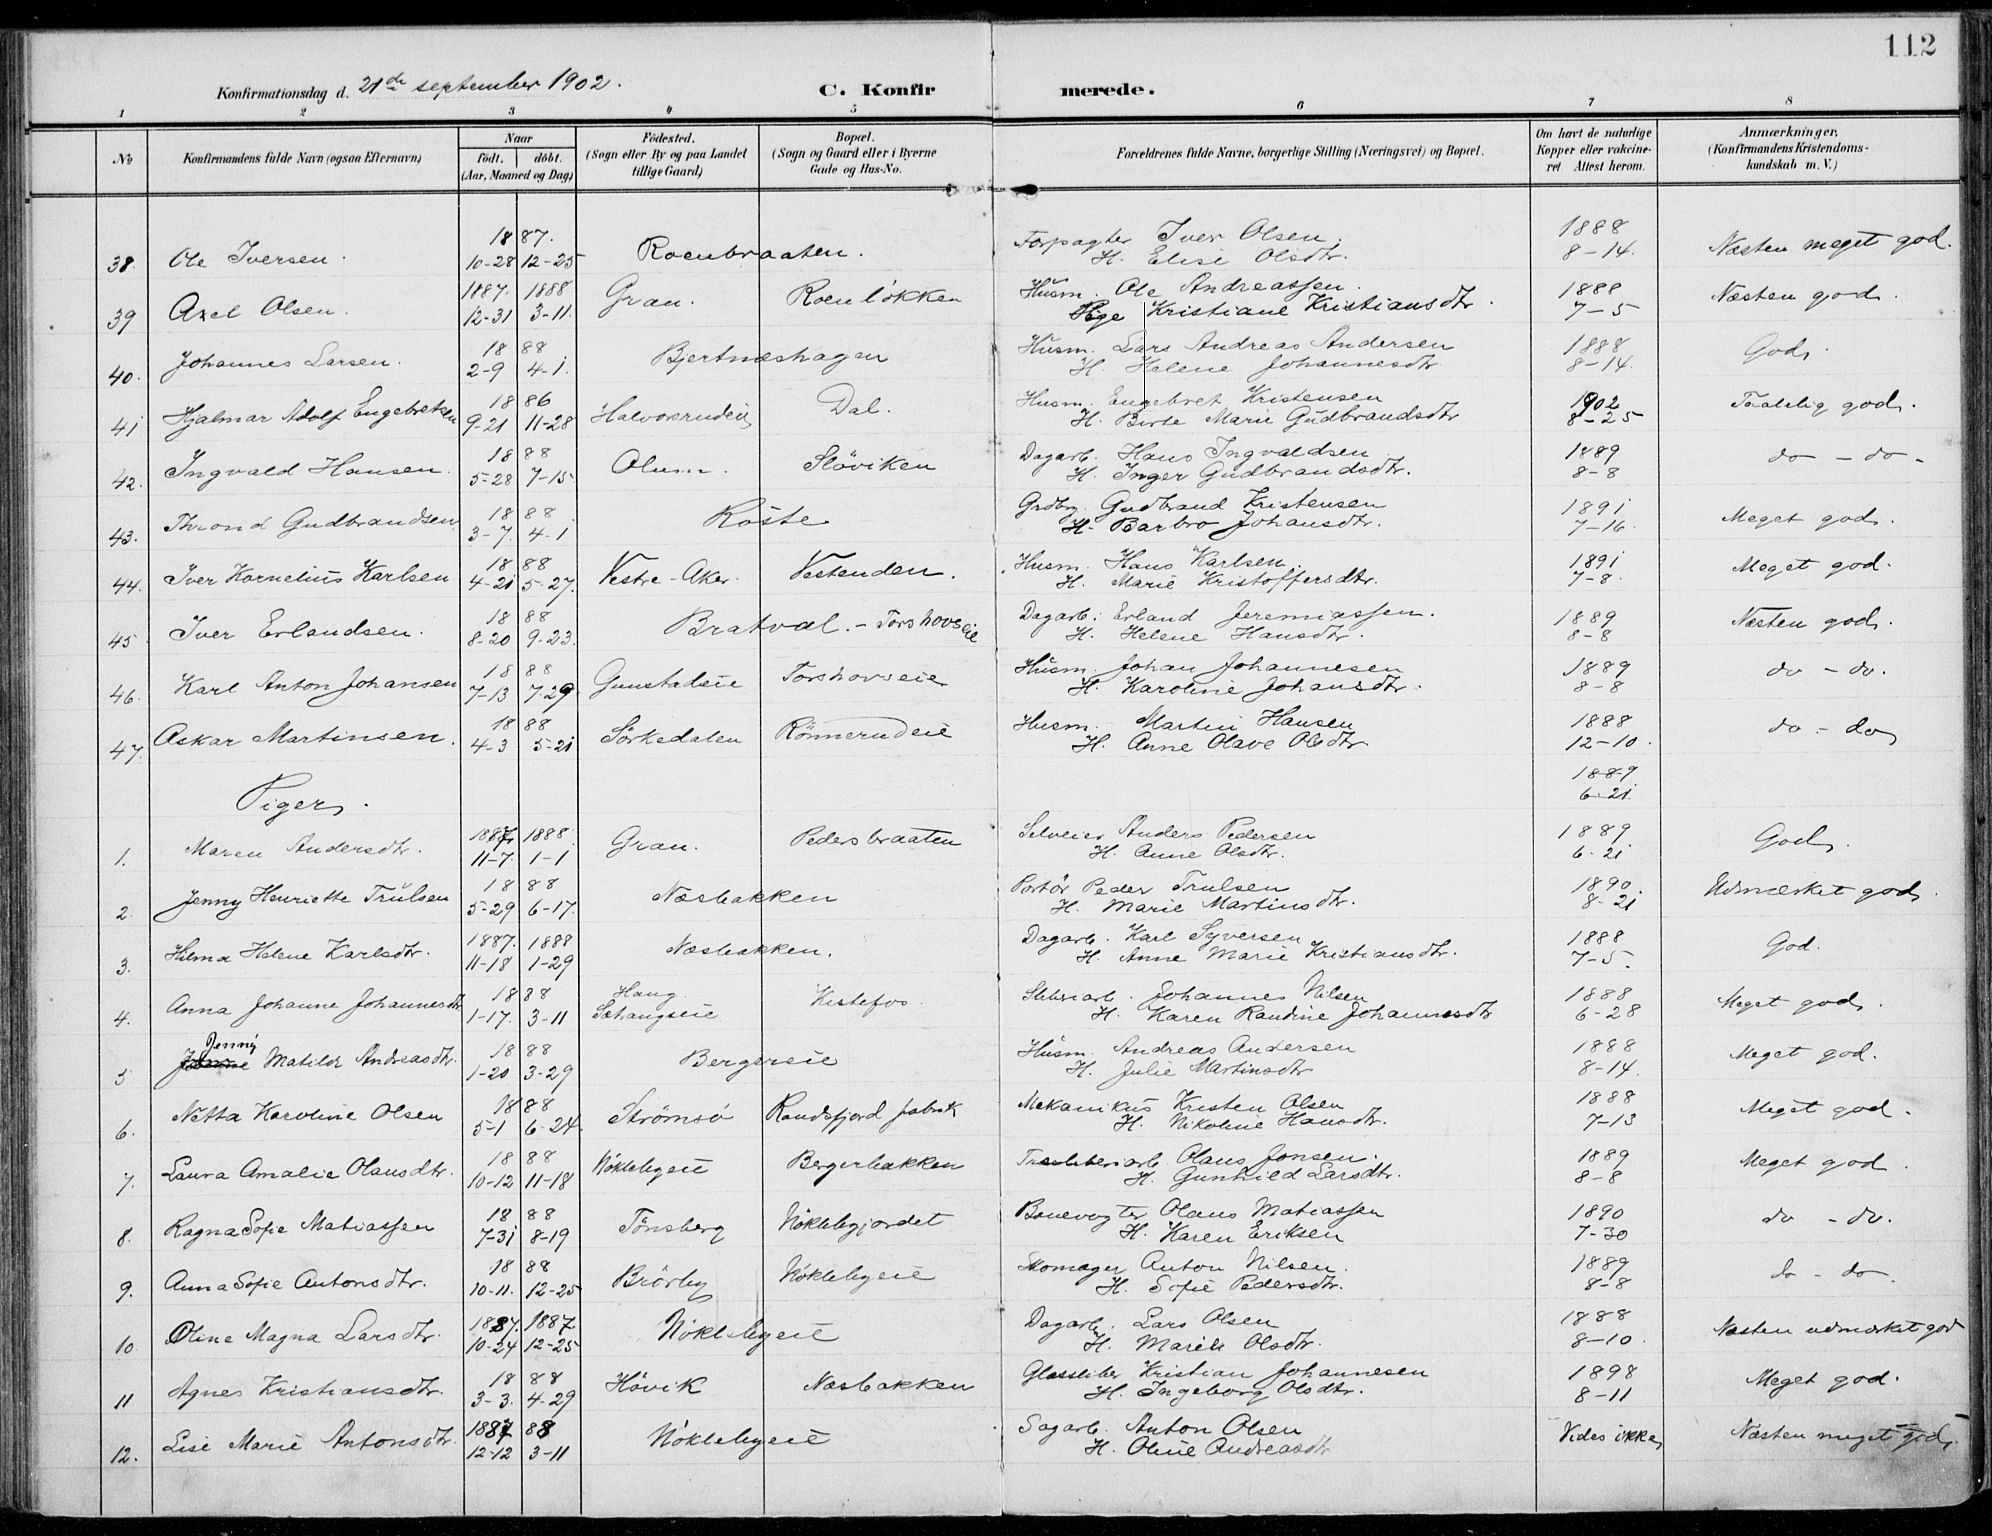 112
Konfirmationsdag d. 21de september 1902.
C. Konfirmerede.
1 2 3 4 5 6 7 8
No
Konfirmandens fulde Navn (ogsaa Efternavn)
Naar
født. døbt.
(Aar, Maaned og Dag)
Fødested.
(Sogn eller By og paa Landet
tillige Gaard)
Bopæl.
(Sogn og Gaard eller i Byerne
Gade og Hus-No.
Forældrenes fulde Navne, borgerlige Stilling (Næringsvei) og Bopæl.
Om havt de naturlige
Kopper eller vakcine-
ret Attest herom.
Anmærkninger.
(Konfirmandens Kristendoms-
kundskab m. V.)
18 87. Forpagter Iver Olsen. 1888
38. Ole Iversen. 10-28 12-25 Roenbraaten. H. Elise Olsdtr. 8-14. Næsten meget god.
1887. 1888 Husm. Ole Andreassen. 1888
39 Axel Olsen. 12-31 3-11. Gran. Roenløkken Pige Kristiane Kristiansdtr. 7-5 Næsten god.
18 88 Husm. Lars Andreas Andersen 1888
40. Johannes Larsen. 2-9 4-1. Bjertnæshagen H. Helene Johannesdtr 8-14. God.
18 86 Husm. Engebret Kristensen 1902
41 Hjalmar Adolf Engebretsen 9-21 11-28 Halvorsrudeie Dal. H. Birte Marie Gudbrandsdtr 8-25 Taalelig god.
18 88 Dagarb. Hans Ingvaldsen 1889
42. Ingvald Hansen. 5-28 7-15 Olum. Sløviken H. Inger Gudbrandsdtr. 8-8 do - do -
18 88 Grdbr. Gudbrand Kristensen 1891
43. Thrond Gudbrandsen 3-7. 4-1 Røste H. Barbro Johansdtr. 7-16. Meget god.
18 88 Husm. Hans Karlsen. 1891
44. Iver Kornelius Karlsen 4-21 5-27. Vestre-Aker. Vestenden. H. Marie Kristoffersdtr. 7-8. Meget god.
18 88 Dagarb. Erland Jeremiassen. 1889
45. Iver Erlandsen. 8-20 9-23. Bratval. - Torshovseie H. Helene Hansdtr. 8-8 Næsten god.
18 88 Husm. Johan Johannesen 1889
46. Karl Anton Johansen 7-13 7-29 Gunstadeie Torshovseie H. Karoline Johansdtr. 8-8 do - do.
18 88 Husm. Martin Hansen 1888
47. Oskar Martinsen. 4-3 5-21 Sørkedalen Rønnerudeie H. Anne Olave Olsdtr 12-10. do - do
1889
Piger. 6-21
1887 1888 Selveier Anders Pedersen 1889
1. Maren Andersdtr. 11-7. 1-1 Gran. Pedersbraaten H. Anne Olsdtr. 6-21 God.
18 88 Portør Peder Trulsen 1890.
2. Jenny Henriette Trulsen 5-29 6-17. Næsbakken H. Marie Martinsdtr. 8-21 Udmærket god.
1887. 1888 Dagarb. Karl Syversen 1888
3. Hilma Helene Karlsdtr. 11-18 1-29 Næsbakken. H. Anne Marie Kristiansdtr. 7-5. God.
18 88 Haug Sliberiarb. Johannes Nilsen 1888
4. Anna Johanne Johannesdtr 1-17. 3-11 Sæhaugseie Kistefos H. Karen Randine Johannesdtr 6-28 Meget god.
Jenny 18 88 Husm. Andreas Andersen 1888
5 Johanne Matilde Andreasdtr. 1-20 3-29 Bergereie H. Julie Martinsdtr 8-14. Meget god.
18 88 Mekanikus Kristen Olsen 1888
6. Netta Karoline Olsen 5-1 6-24. Strømsø Randsfjord fabrik H. Nikoline Hansdtr. 7-13 Meget god.
18 88 Træsliberiarb. Olaus Jonsen. 1889
7. Laura Amalie Olausdtr. 10-12 11-18 Nøklebyeie Bergerbakken H. Gunhild Larsdtr. 8-8 Meget god.
18 88 Banevogter Olaus Matiassen 1890
8. Ragna Sofie Matiassen 7-31 8-19 Tønsberg Nøklebygjordet H. Karen Eriksen 7-30 do - do.
18 88 Skomager Anton Nilsen. 1889
9. Anna Sofie Antonsdtr. 10-11. 12-25 Brørby Nøklebyeie H. Sofie Pedersdtr. 8-8 do - do.
1887. 1887. Dagarb. Lars Olsen 1888
10 Oline Magna Larsdtr. 10-24 12-25 Nøklebyeie H. Marie Olsdtr. 8-10. Næsten udmærket god
18 88 Glassliber Kristian Johannesen 1898
11 Agnes Kristiansdtr. 3-3. 4-29 Høvik Næsbakken H. Ingeborg Olsdtr. 8-11 Meget god.
1887 88 Sagarb. Anton Olsen
12. Lise Marie Antonsdtr. 12-12 3-11 Nøklebyeie H. Oline Andreasdtr Vides ikke Næsten meget god.